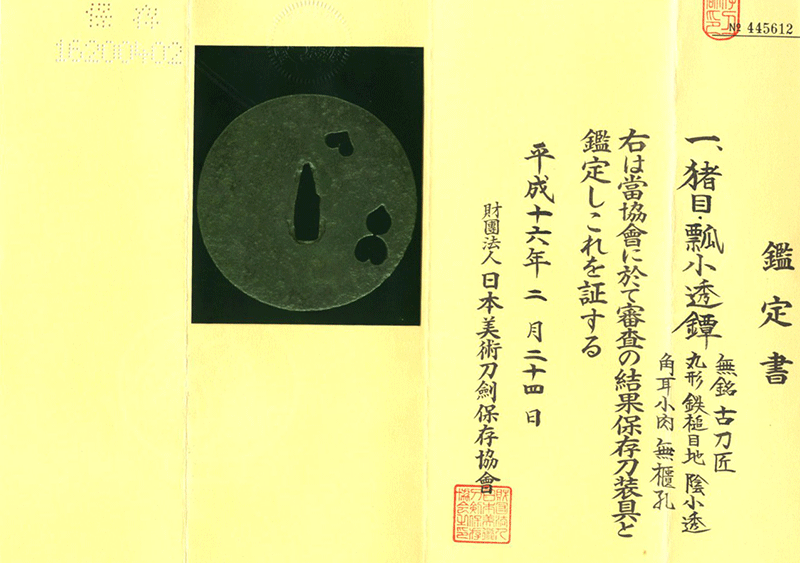 № 445612
鑑定書
一、猪目・瓢小透鐔
無銘 古刀匠
丸形 鉄槌目地 陰小透
角耳小肉 無櫃孔
右は當協會に於て審査の結果保存刀装具と
鑑定しこれを証する
平成十六年二月二十四日
財團法人 日本美術刀劍保存協會
保存
16200402